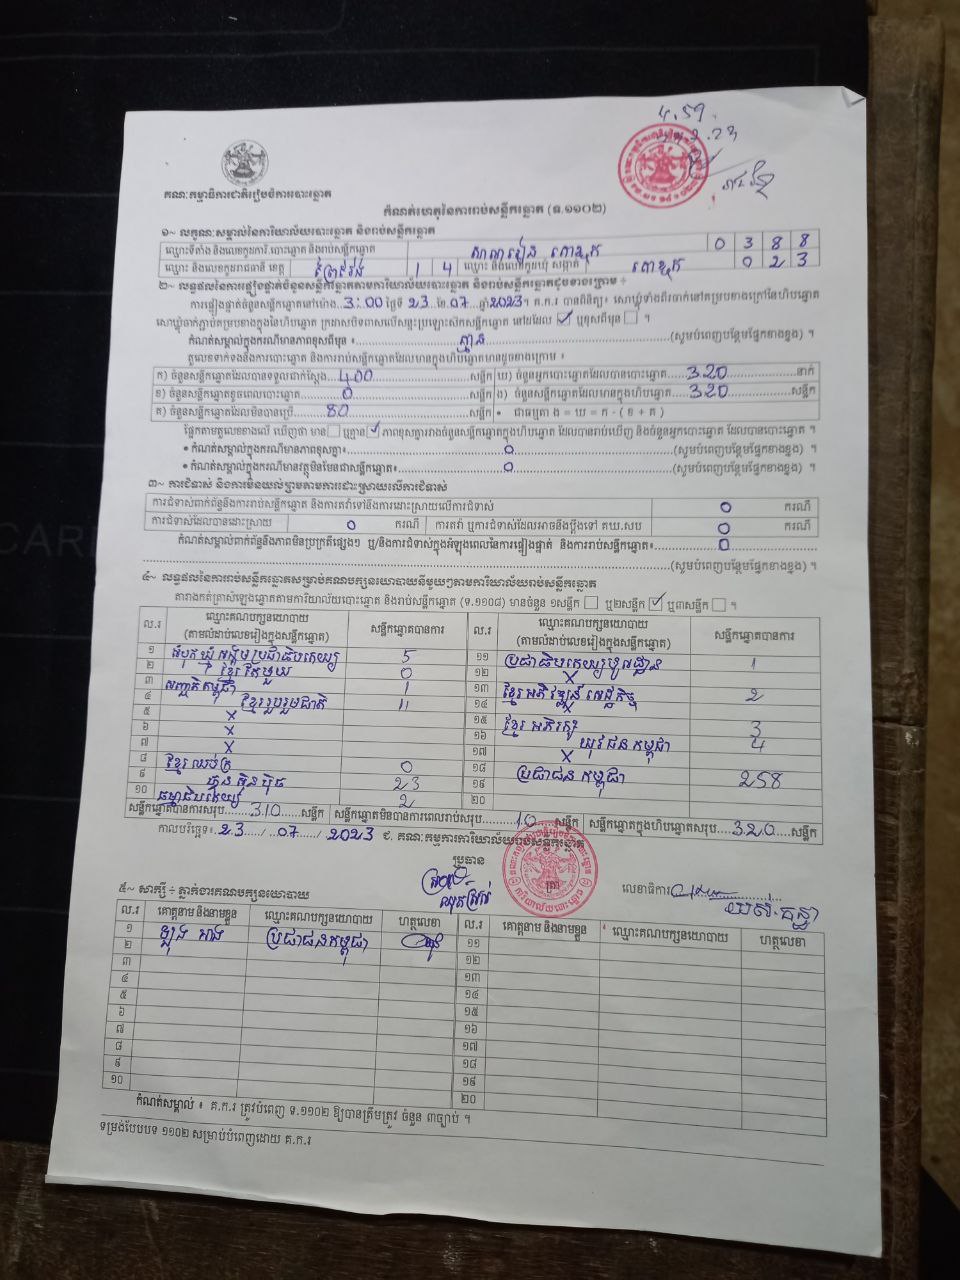 4.59
គណៈកម្មាធិការជាតិរៀបចំការបោះឆ្នោត
កំណត់ហេតុនៃការរាប់សន្លឹកឆ្នោត (ទ.១១០២)
១~ លក្ខណៈសម្គាល់នៃការិយាល័យបោះឆ្នោត និងរាប់សន្លឹកឆ្នោត
ឈ្មោះទីតាំង និងលេខកូដការិ.បោះឆ្នោត និងរាប់សន្លឹកឆ្នោត សាលារៀន តាឱក 0 3 8 8
ឈ្មោះ និងលេខកូដរាជធានី ខេត្ត ព្រៃវែង 1 4 ឈ្មោះ និងលេខកូដឃុំ សង្កាត់ 0 2 3
២~ លទ្ធផលនៃការផ្ទៀងផ្ទាត់ចំនួនសន្លឹកឆ្នោតតាមការិយាល័យបោះឆ្នោត និងរាប់សន្លឹកឆ្នោតដូចខាងក្រោម ÷
ការផ្ទៀងផ្ទាត់ចំនួនសន្លឹកឆ្នោតនៅម៉ោង 3:00 ថ្ងៃទី 23 ខែ 07 ឆ្នាំ 2023។ គ.ក.រ បានពិនិត្យ៖ សោឃ្លុំទាំងពីរចាក់នៅគម្របខាងក្រៅនៃហិបឆ្នោត
សោឃ្លុំចាក់ភ្ជាប់គម្របខាងក្នុងនៃហិបឆ្នោត ក្រដាសបិទពាសលើសន្ទះប្រឡោះស៊កសន្លឹកឆ្នោត នៅដដែល ☑ ឬខុសពីមុន ☐ ។
កំណត់សម្គាល់ក្នុងករណីមានភាពខុសពីមុន ៖ គ្មាន (សូមបំពេញបន្ថែមផ្នែកខាងខ្នង) ។
តួលេខទាក់ទងនឹងការបោះឆ្នោត និងការរាប់សន្លឹកឆ្នោតដែលមានក្នុងហិបឆ្នោតមានដូចខាងក្រោម ៖
ក) ចំនួនសន្លឹកឆ្នោតដែលបានទទួលជាក់ស្តែង 400 សន្លឹក ឃ) ចំនួនអ្នកបោះឆ្នោតដែលបានបោះឆ្នោត 320 នាក់
ខ) ចំនួនសន្លឹកឆ្នោតខូចពេលបោះឆ្នោត 0 សន្លឹក ង) ចំនួនសន្លឹកឆ្នោតដែលមានក្នុងហិបឆ្នោត 320 សន្លឹក
គ) ចំនួនសន្លឹកឆ្នោតដែលមិនបានប្រើ 80 សន្លឹក • ជាធម្មតា ង = ឃ = ក - ( ខ + គ )
ផ្អែកតាមតួលេខខាងលើ ឃើញថា មាន ☐ ឬគ្មាន ☑ ភាពខុសគ្នារវាងចំនួនសន្លឹកឆ្នោតក្នុងហិបឆ្នោត ដែលបានរាប់ឃើញ និងចំនួនអ្នកបោះឆ្នោត ដែលបានបោះឆ្នោត ។
• កំណត់សម្គាល់ក្នុងករណីមានភាពខុសគ្នា៖ 0 (សូមបំពេញបន្ថែមផ្នែកខាងខ្នង) ។
• កំណត់សម្គាល់ក្នុងករណីមានវត្ថុមិនមែនជាសន្លឹកឆ្នោត៖ 0 (សូមបំពេញបន្ថែមផ្នែកខាងខ្នង) ។
៣~ ការជំទាស់ និងការមិនយល់ព្រមតាមការដោះស្រាយលើការជំទាស់
ការជំទាស់ពាក់ព័ន្ធនឹងការរាប់សន្លឹកឆ្នោត និងការតវ៉ាទៅនឹងការដោះស្រាយលើការជំទាស់ 0 ករណី
ការជំទាស់ដែលបានដោះស្រាយ 0 ករណី ការតវ៉ា ឬការជំទាស់ដែលអាចនឹងប្តឹងទៅ គឃ.សប 0 ករណី
កំណត់សម្គាល់ពាក់ព័ន្ធនឹងភាពមិនប្រក្រតីផ្សេងៗ ឬ/និងការជំទាស់ក្នុងអំឡុងពេលនៃការផ្ទៀងផ្ទាត់ និងការរាប់សន្លឹកឆ្នោត៖ 0
(សូមបំពេញបន្ថែមផ្នែកខាងខ្នង) ។
៤~ លទ្ធផលនៃការរាប់សន្លឹកឆ្នោតសម្រាប់គណបក្សនយោបាយនីមួយៗតាមការិយាល័យរាប់សន្លឹកឆ្នោត
តារាងកត់ត្រាសំឡេងឆ្នោតតាមការិយាល័យបោះឆ្នោត និងរាប់សន្លឹកឆ្នោត (ទ.១១០៨) មានចំនួន ១សន្លឹក ☐ ឬ២សន្លឹក ☑ ឬ៣សន្លឹក ☐ ។
ល.រ ឈ្មោះគណបក្សនយោបាយ (តាមលំដាប់លេខរៀងក្នុងសន្លឹកឆ្នោត) សន្លឹកឆ្នោតបានការ ល.រ ឈ្មោះគណបក្សនយោបាយ (តាមលំដាប់លេខរៀងក្នុងសន្លឹកឆ្នោត) សន្លឹកឆ្នោតបានការ
១ សំបុកឃ្មុំសង្គមប្រជាធិបតេយ្យ 5 ១១ ប្រជាធិបតេយ្យមូលដ្ឋាន 1
២ ខ្មែរតែមួយ 0 ១២ x
៣ សញ្ជាតិកម្ពុជា 1 ១៣ ខ្មែរអភិវឌ្ឍន៍សេដ្ឋកិច្ច 2
៤ ខ្មែររួបរួមជាតិ 11 ១៤ x
៥ x ១៥ ខ្មែរអភិរក្ស 3
៦ x ១៦ យុវជនកម្ពុជា 4
៧ x ១៧ x
៨ ខ្មែរឈប់ក្រ 0 ១៨ ប្រជាជនកម្ពុជា 258
៩ ហ្វ៊ុនស៊ិនប៉ិច 23 ១៩
១០ ធម្មាធិបតេយ្យ 2 ២០
សន្លឹកឆ្នោតបានការសរុប 310 សន្លឹក សន្លឹកឆ្នោតមិនបានការពេលរាប់សរុប 10 សន្លឹក សន្លឹកឆ្នោតក្នុងហិបឆ្នោតសរុប 320 សន្លឹក
កាលបរិច្ឆេទ៖ 23 / 07 / 2023 ជ. គណៈកម្មការការិយាល័យរាប់សន្លឹកឆ្នោត
ប្រធាន ត្រា លេខាធិការ
៥~ សាក្សី ÷ ភ្នាក់ងារគណបក្សនយោបាយ
ល.រ គោត្តនាម និងនាមខ្លួន ឈ្មោះគណបក្សនយោបាយ ហត្ថលេខា ល.រ គោត្តនាម និងនាមខ្លួន ឈ្មោះគណបក្សនយោបាយ ហត្ថលេខា
១ ឡុង អាង ប្រជាជនកម្ពុជា ១១
២ ១២
៣ ១៣
៤ ១៤
៥ ១៥
៦ ១៦
៧ ១៧
៨ ១៨
៩ ១៩
១០ ២០
កំណត់សម្គាល់ ៖ គ.ក.រ ត្រូវបំពេញ ទ.១១០២ ឱ្យបានត្រឹមត្រូវ ចំនួន ៣ច្បាប់ ។
ទម្រង់បែបបទ ១១០២ សម្រាប់បំពេញដោយ គ.ក.រ